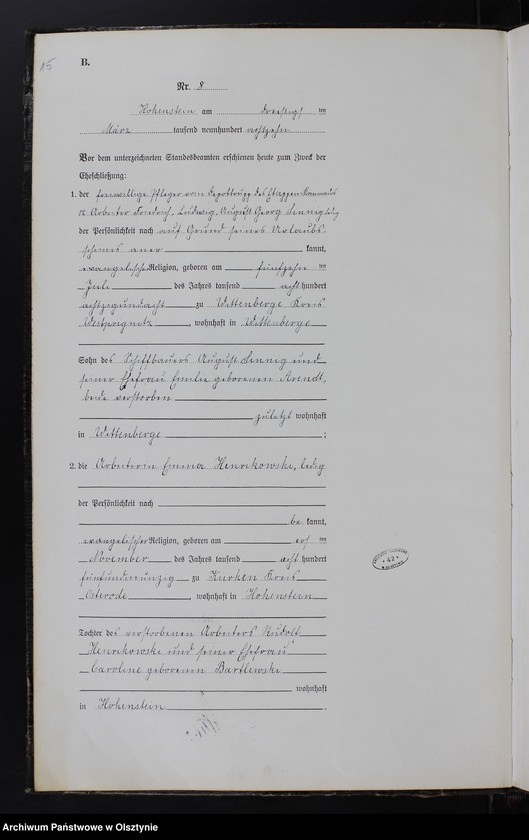 15
B.
Nr. 8
Hohenstein am dreißigsten
März tausend neunhundert achtzehn
Vor dem unterzeichneten Standesbeamten erschienen heute zum Zweck der
Eheschließung:
1. der freiwillige Pfleger vom Depottrupp der Etappen
Arbeiter Friedrich, Ludwig, August Georg Sennig, ledig
der Persönlichkeit nach auf Grund seines Urlaubs-
scheines aner kannt,
evangelischer Religion, geboren am fünfzehnten
Juli des Jahres tausend achthundert
achtzigundacht zu Wittenberge Kreis
Westprignitz, wohnhaft in Wittenberge
Sohn des Schiffbauers August Sennig und
seiner Ehefrau Emilie geborenen Arendt,
beide verstorben
zuletzt wohnhaft
in Wittenberge ;
2. die Arbeiterin Emma Henrikowski, ledig
der Persönlichkeit nach
be kannt,
evangelischer Religion, geboren am ersten
November des Jahres tausend achthundert
fünfundneunzig zu Kurken Kreis
Osterode, wohnhaft in Hohenstein
Tochter des verstorbenen Arbeiters Rudolf
Henrikowski und seiner Ehefrau
Caroline geborenen Bartlewski
wohnhaft
in Hohenstein .
* 42 *
Archiwum Państwowe w Olsztynie